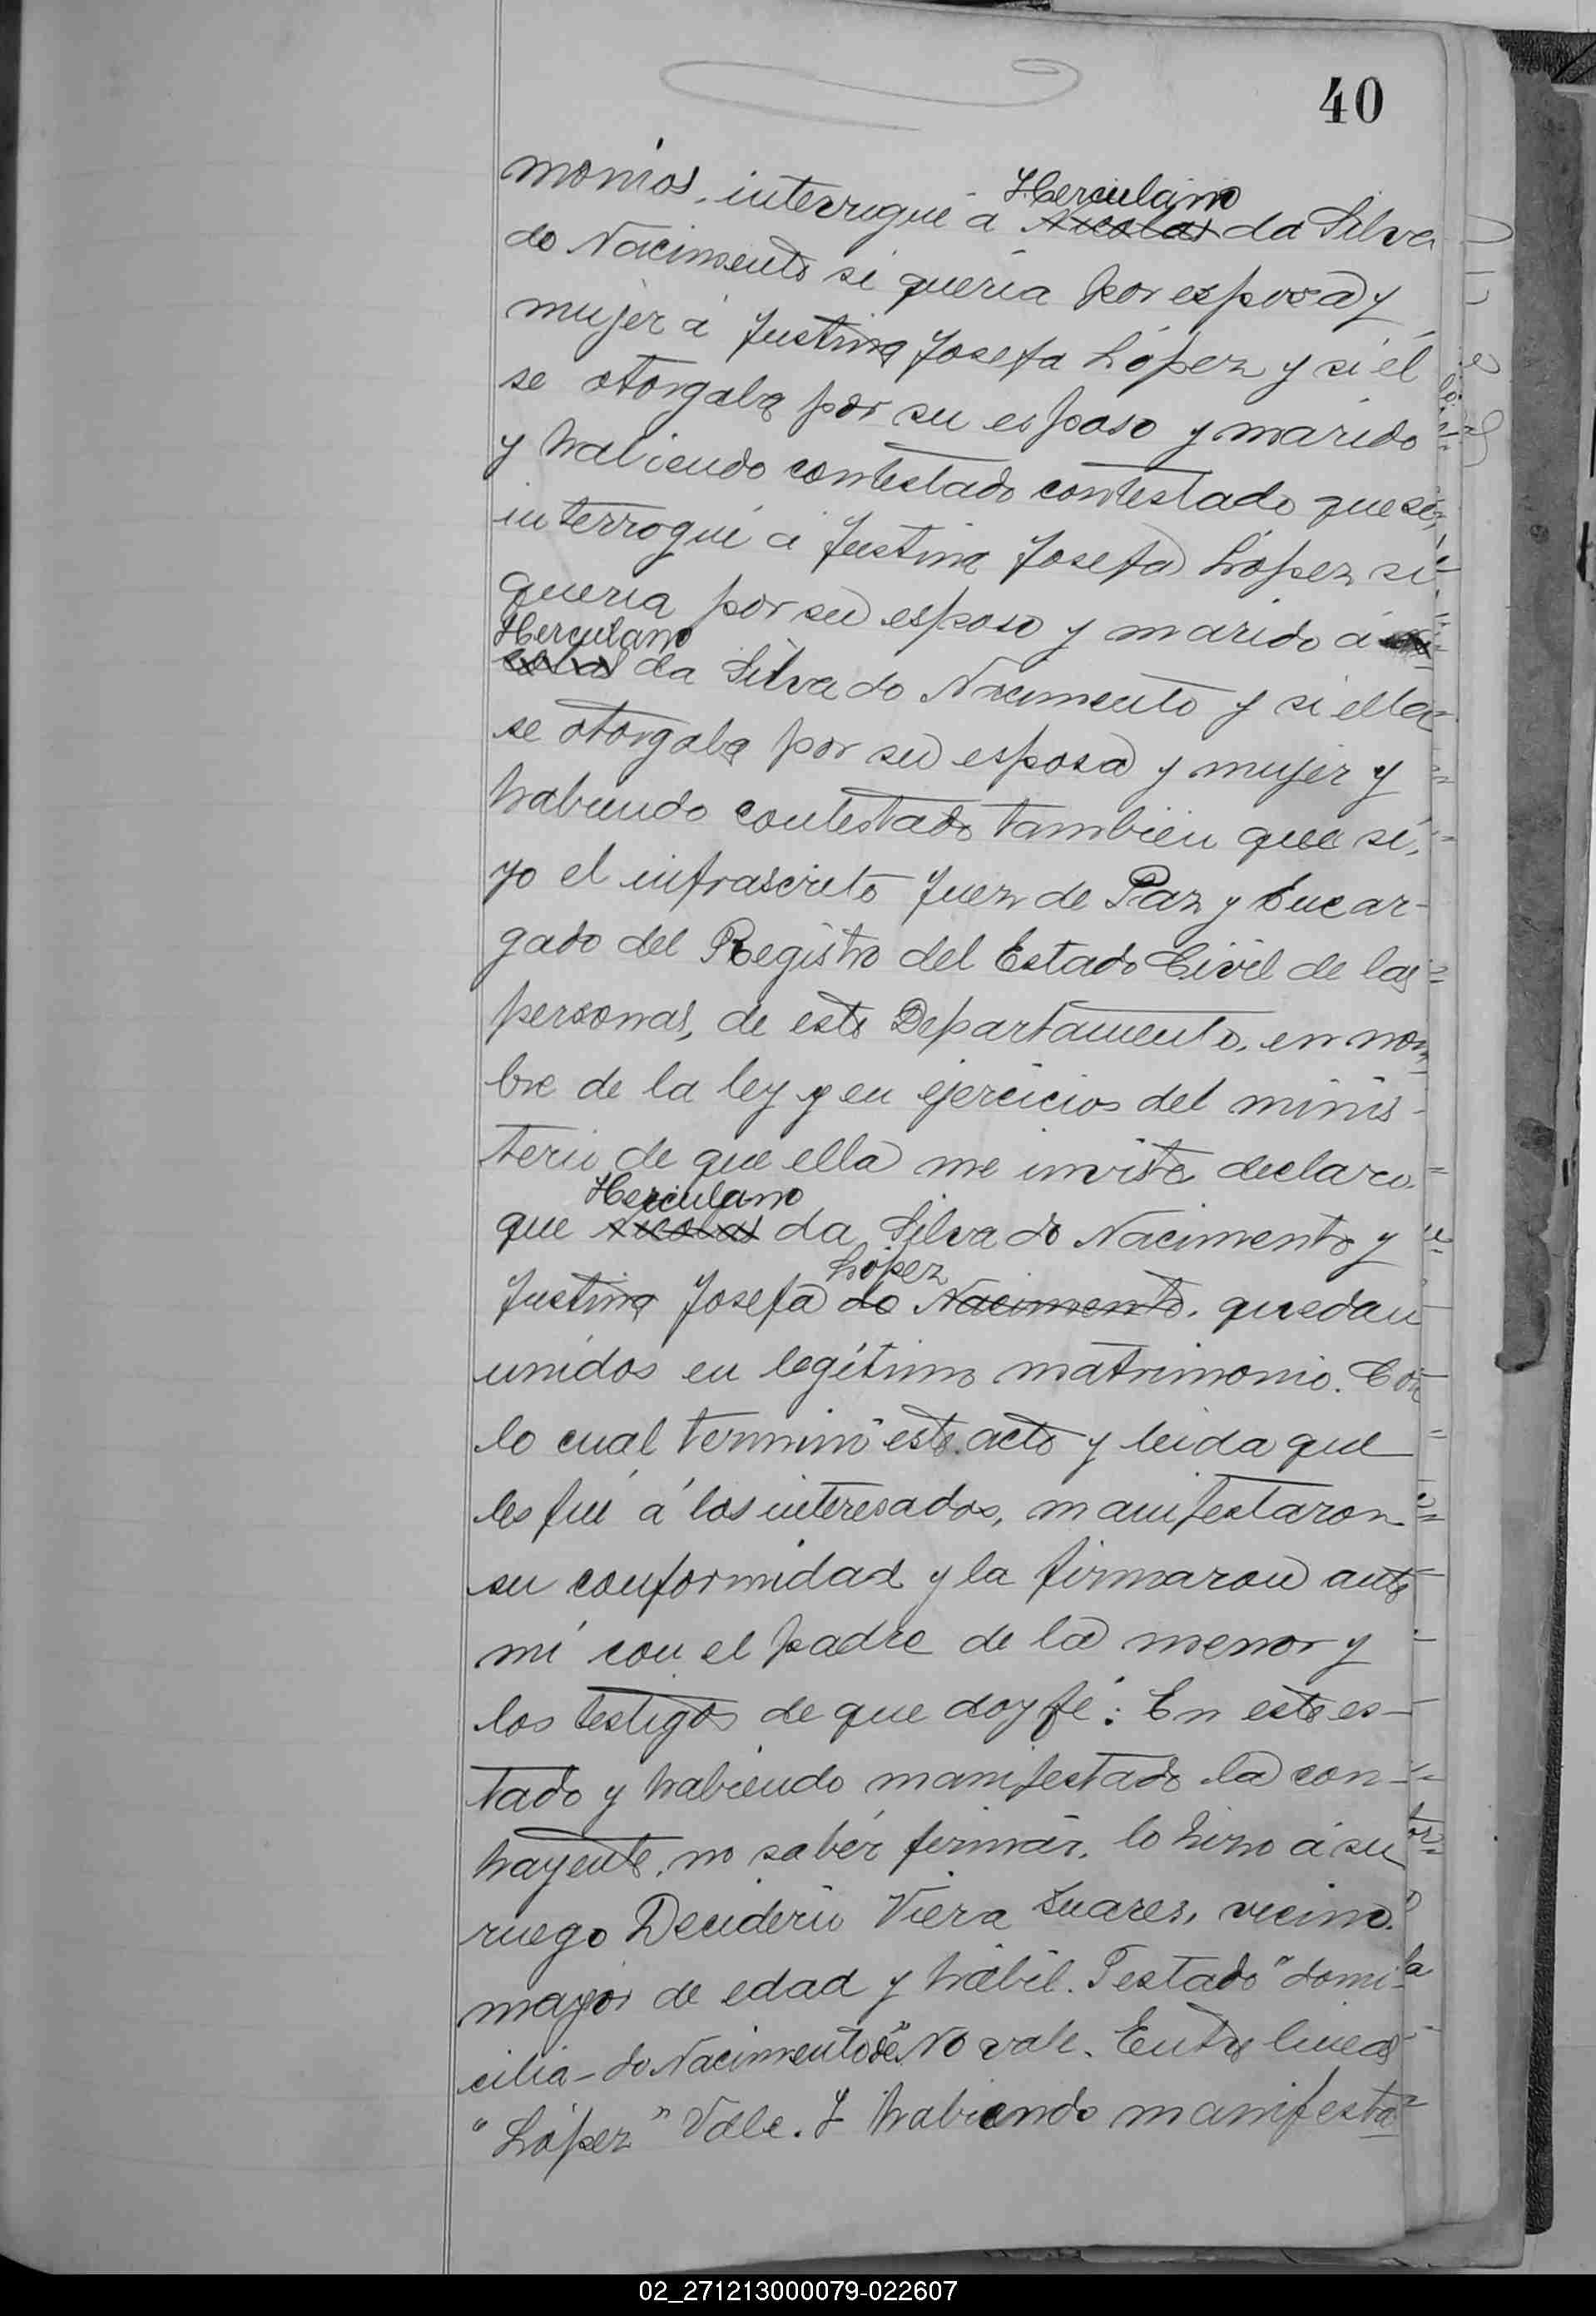 40
monios, interrogué á Herculano Nicolas da Silva
do Nacimento si queria por esposa y
mujer á Justina Josefa López y si él
se otorgaba por su esposo y marido
y habiendo contestado contestado que si,
interrogué á Justina Josefa López si
queria por su esposo y marido á
Herculano colas da Silva do Nacimento y si ella
se otorgaba por su esposa y mujer y
habiendo contestado tambien que si,
yo el infrascrito Juez de Paz y Encar-
gado del Registro del Estado Civil de las
personas, de este Departamento, en nom
bre de la ley y en ejercicios del minis-
terio de que ella me inviste declaro
que Herculano Nicolas da Silva do Nacimento y
Justina Josefa López do Nacimento. quedan
unidos en legítimo matrimonio. Con
lo cual terminó este acto y leida que
les fué á los interesados, manifestaron
su conformidad y la firmaron ante
mi con el padre de la menor y
los testigos de que doy fé: En este es-
tado y habiendo manifestado la con-
trayente, no saber firmar, lo hizo á su
ruego Deciderio Viera Suares, vecino.
mayor de edad y hábil. Testado "domi-
cilia - do Nacimento" No vale. Entre lineas
"López" Vale. Y habiendo manifesta
02_271213000079-022607